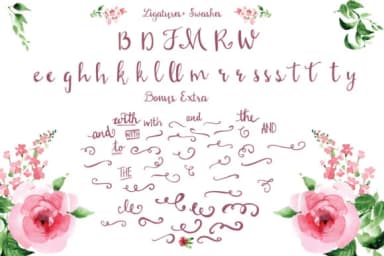 Ligatures+ Swashes
B D F M R W
e e g h h k k l ll m r r s s s t tt t y
Bonus Extra
with with and the
and with AND
to
THE